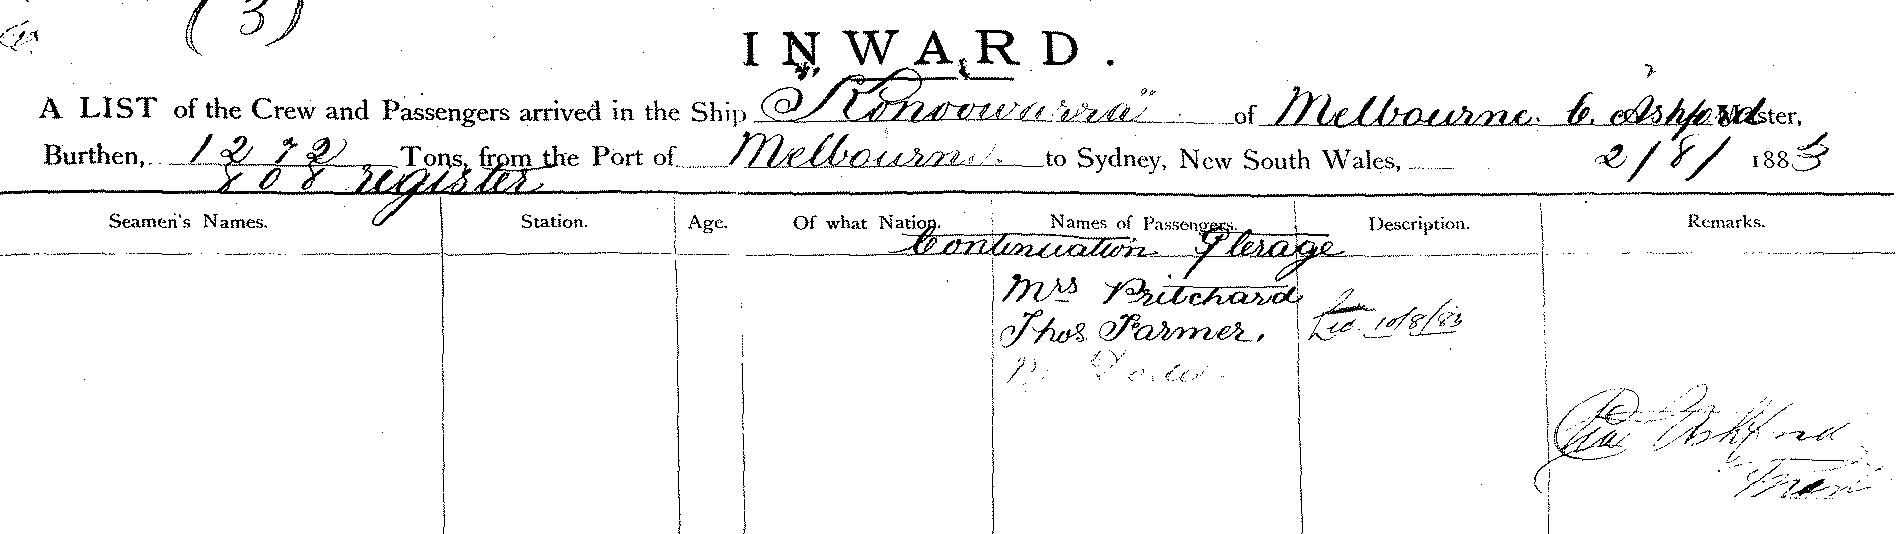 (3)
INWARD.
A LIST of the Crew and Passengers arrived in the Ship "Konoowarra" of Melbourne C. Ashford Master,
Burthen, 1272 Tons, from the Port of Melbourne to Sydney, New South Wales, 2/8/ 1883
808 register
Seamen's Names. Station. Age. Of what Nation. Names of Passengers. Description. Remarks.
Continuation Sterage
Mrs Pritchard
Thos Farmer. 10/8/83
Chas Ashford